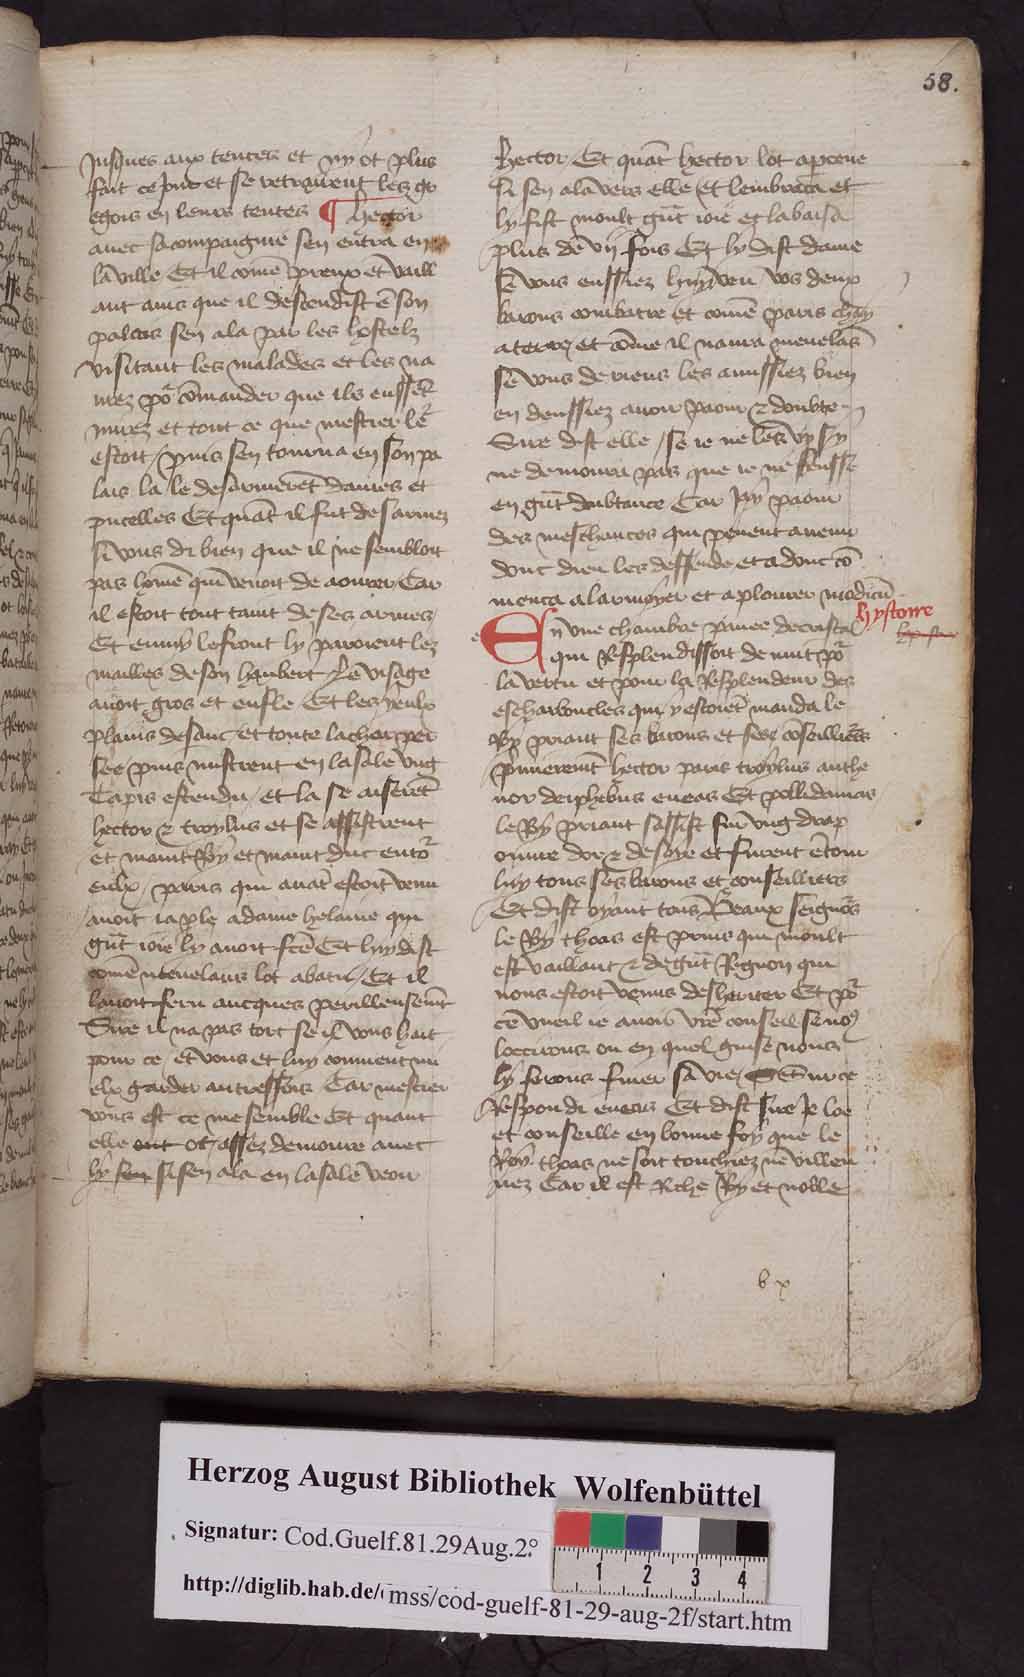 58.
Jusques aux tentes et ny ot plus
fait ce jour et se retrairent les gr
egois en leurs tentes ¶ Hector
auec sa compaignie sen entra en
la ville Et il come preux et vaill
ant ains que il descendist e son
palais sen ala par les hostelz
visitant les malades et les na
urez por comander que ilz eussent
mirez et tout ce que mestier lor
estoit / puis sen tourna en son pa
lais la le desarmeret dames et
pucelles Et quat il fut desarmez
si vous di bien que il ne sembloit
pas home qui venoit de aourer Car
il estoit tout taint de ses armes
Et enmy le front ly paroient lez
mailles de son haubert Le visage
auoit gros et enfle Et les yeulx
plains de sanc et toute la char per
see puis mistrent en la sale vng
Tapis estendu / et la se aiseret
hector & troylus et se assistrent
et maint Roy et maint duc entor
eulx / paris qui auat estoit venu
auoit ia ple a dame helaine qui
gnt ioie ly auoit fce Et luy dist
come menelaus lot abatu / Et il
lauoit feru aucques perilleusemt
Sire il na pas tort se il vous hait
pour ce et vous et luy conuient mi
elx garder autressois Car mestier
vous est ce me semble Et quant
elle ont ot assez demoure auec
ly sen si sen ala en la sale veoir
Hector Et quat hector lot apceue
si sen ala vers elle Et lembraca et
ly fist moult gnt ioie et la baisa
plus de vij fois Et ly dist dame
se vous eussiez huy veu vos deux
barons combatre et come paris chay
a terre et come il naura menelas
se vous de riens les amissiez bien
en deussiez auoir paour & doubte
Sire dist elle / se ie ne les vy sy
ne demoura pas que ie ne feusse
en gnt doubtance Car jay paour
des meschances qui peuent auenir
dont dieu les deffende et a dont co
menca a larmoyer et a plourer
hystoire
En vne chambre pauee de cristal
qui Resplendissoit de nuit por
la vertu et pour la Resplendeur des
escharboucles qui y estoiet manda le
Roy priant ses barons et ses coseilliers
primeremt hector paris troylus anthe
nor deiphebus eneas Et polidamas
le Roy priant sassist sur vng drap
ouure dor & de soye et furent etour
luy tous ses barons et conseilliers
Et dist oyant tous Beaux seignors
le Roy thoas est prins qui moult
est vaillant & de gnt Region qui
nous estoit venus desheriter Et por
ce vueil ie auoir vre conseil se nos
loccirons ou en quel guise nous
ly ferons finer sa vie / Sur ce
Respondi eneas Et dist sire Je loe
et conseille en bonne foy que le
Roy thoas ne soit touchiez ne villen
nez Car il est Riche Roy et noble
b x
Herzog August Bibliothek Wolfenbüttel
Signatur: Cod.Guelf.81.29Aug.2°
1 2 3 4
http://diglib.hab.de/mss/cod-guelf-81-29-aug-2f/start.htm